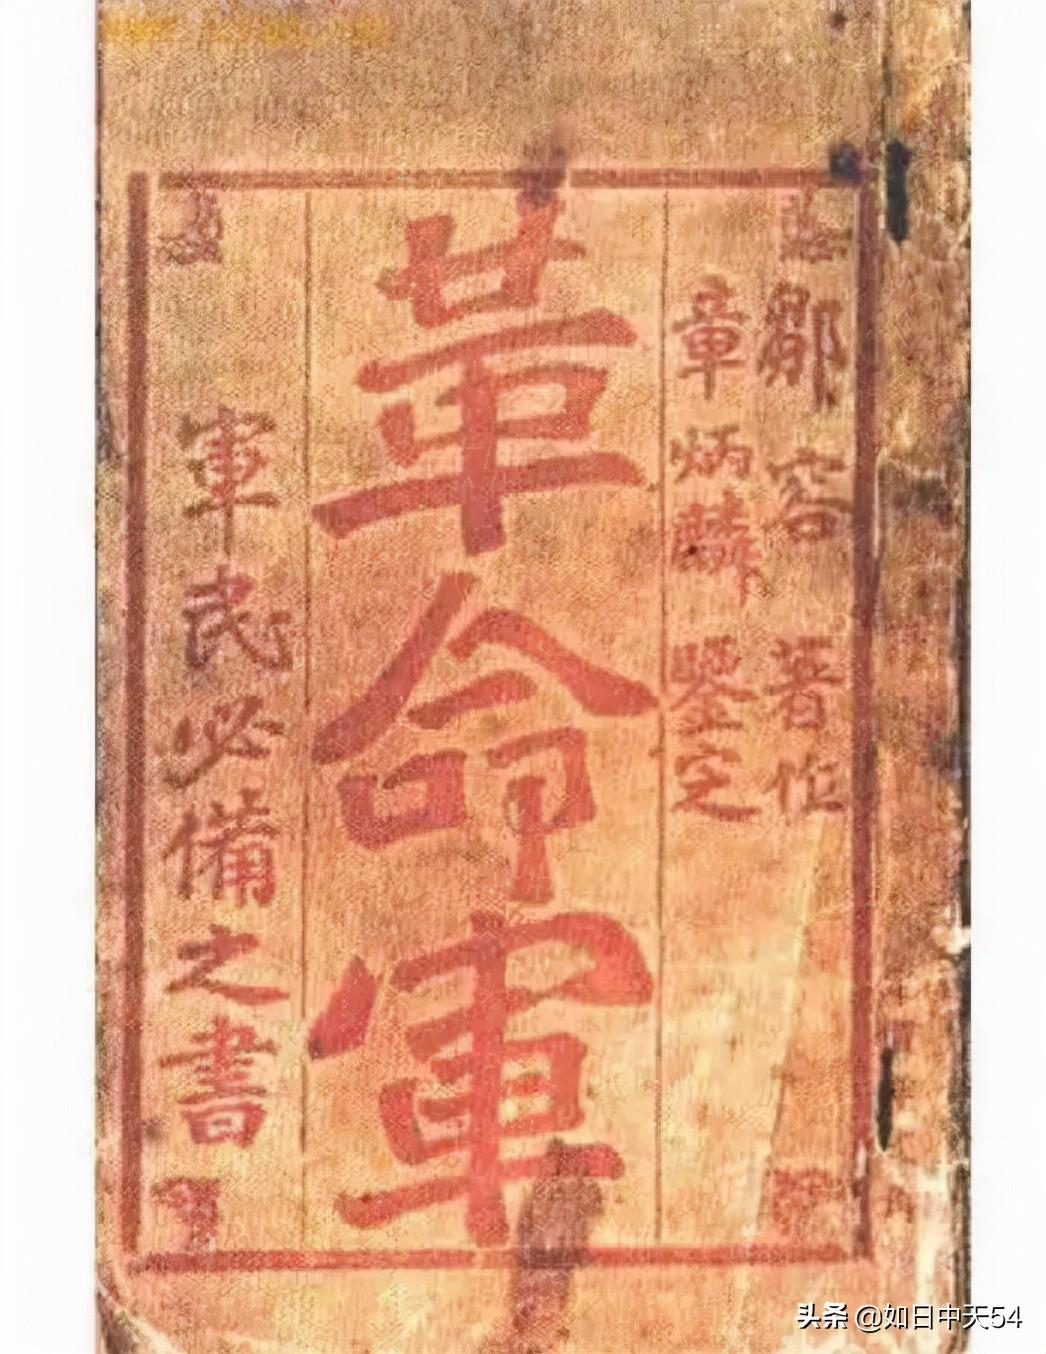 鄒容 著作
章炳麟 鑒定
革命軍
軍民必備之書
头条 @如日中天54